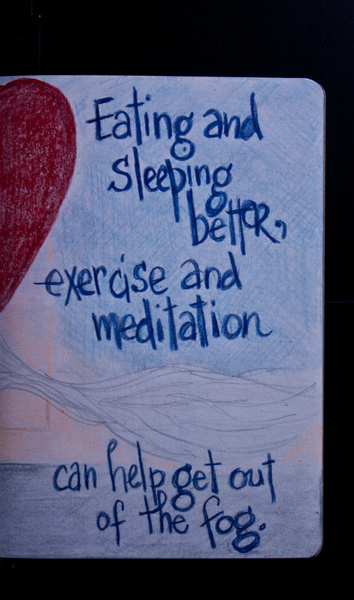 Eating and
Sleeping
better,
exercise and
meditation
can help get out
of the fog.